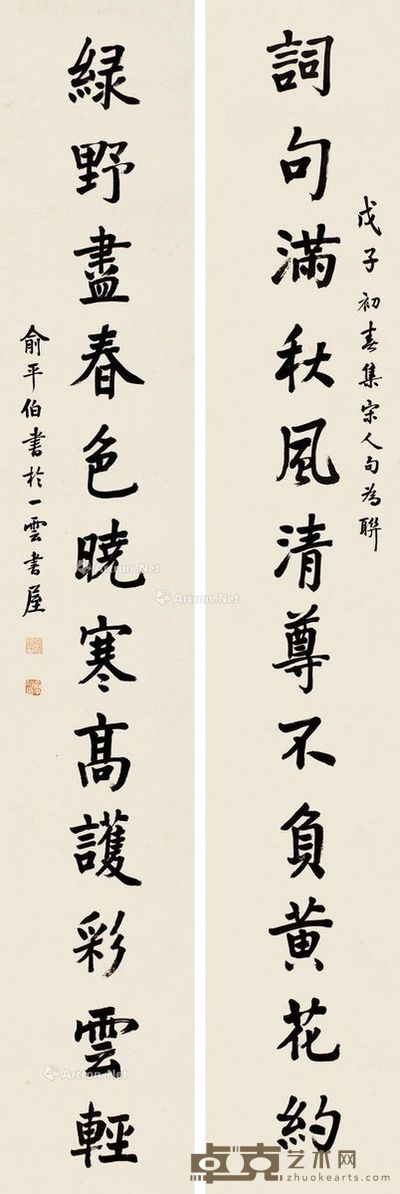 詞句滿秋風清尊不負黄花約
戊子初春集宋人句為聯
緑野盡春色曉寒高護彩雲輕
俞平伯書於一雲書屋
Artron.Net
Artron.Net
Artron.Net
卓克艺术网
zhuokearts.com